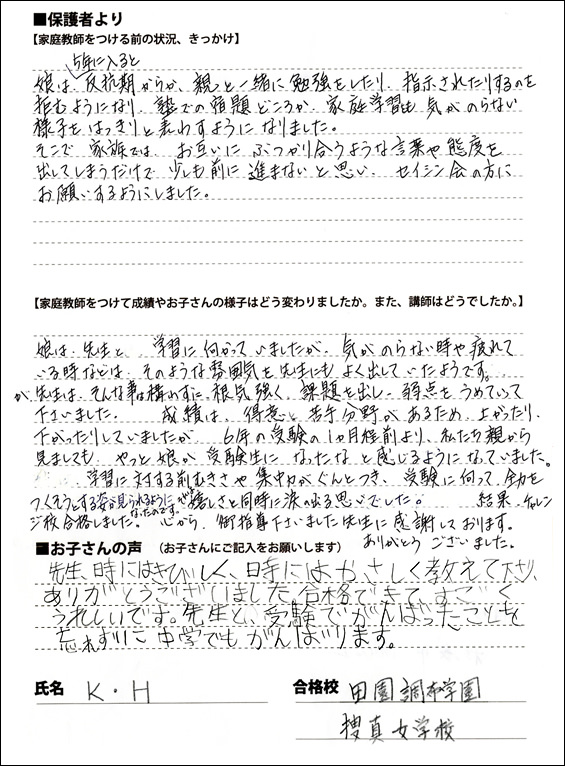 ■保護者より
【家庭教師をつける前の状況、きっかけ】
5年に入ると
娘は反抗期からか、親と一緒に勉強をしたり、指示されたりするのを
拒むようになり、塾での宿題どころか、家庭学習も気がのらない
様子をはっきりと表わすようになりました。
そこで家族では、お互いにぶつかり合うような言葉や態度を
出してしまうだけで少しも前に進まないと思い、セイシン会の方に
お願いするようにしました。
【家庭教師をつけて成績やお子さんの様子はどう変わりましたか。また、講師はどうでしたか。】
娘は、先生と、学習に向かっていましたが、気がのらない時や疲れて
いる時などは、そのような雰囲気を先生にもよく出していたようです。
が先生は、そんな事は構わずに、根気強く、課題を出し、弱点をうめていって
下さいました。 成績は、得意と苦手分野があるため、上がったり、
下がったりしていましたが 6年の受験の1ヵ月程前より、私たち親から
見ましても、やっと娘が受験生になったなと感じるようになっていました。
学習に対する前むきさや集中力がぐんとつき、受験に向って、全力を
つくそうとする姿が見られるように
なったのです。
嬉しさと同時に涙の出る思いでした。 結果、チャレン
ジ校合格しました。心から、御指導下さいました先生に感謝しております。
ありがとうございました。
■お子さんの声 (お子さんにご記入をお願いします)
先生、時にはきびしく、時にはやさしく教えて下さり、
ありがとうございました。合格できて、すごく
うれしいです。先生と、受験でがんばったことを
忘れずに中学でもがんばります。
氏名 K・H
合格校 田園調布学園
捜真女学校